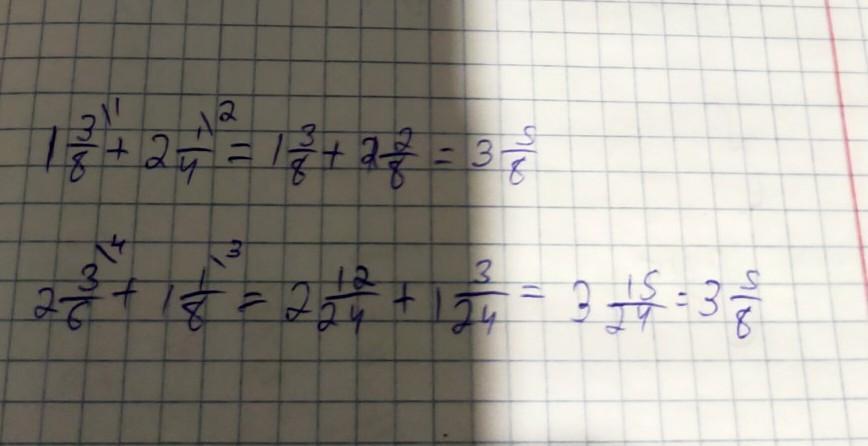 1 3/8 \1 + 2 1/4 \2 = 1 3/8 + 2 2/8 = 3 5/8
2 3/6 \4 + 1 1/8 \3 = 2 12/24 + 1 3/24 = 3 15/24 = 3 5/8